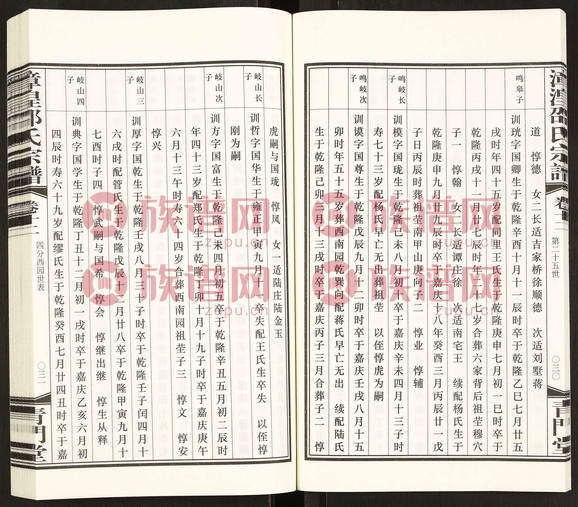 漳湟邵氏宗谱
卷二
第二十五世
〇三〇
青門堂
道 惇德 女二长适吉家桥徐顺德 次适刘墅蒋
鸣皋子
训珖字国卿生于乾隆辛酉十月十一辰时卒于乾隆乙巳七月初八
戌时年四十五岁配同里王氏生于乾隆庚申九月十一巳时卒于
乾隆丙戌十一月廿七辰时年二十七岁合葬六家背后祖茔穆穴
子一 惇翰 女一长适谭庄徐 次适南宅王 续配杨氏生于
乾隆庚申九月廿九辰时卒于嘉庆十八年癸酉三月丙辰廿一戌
时寿七十四岁葬祖茔南甲山庚向子二 惇业 惇辅
鸣岐长子
训模字国珑生于乾隆己未八月初二未时卒于嘉庆八月十三子时
寿七十七岁配杨氏早亡无出葬祖茔 以侄惇虎为嗣
鸣岐次子
训谟字国尊生于乾隆戊辰九月十二卯时卒于嘉庆壬戌八月十五
卯时年五十五岁葬西南园乾巽向配蒋氏早亡无出 续配陆氏
生于乾隆己卯三月十三戌时卒于嘉庆丙子三月合葬子二 惇
虎嗣与国珑 惇凤 女一适陆庄陆金玉
岐山长子
训哲字国华生于雍正甲寅九月十一卒失配王氏生卒失 以侄惇
刚为嗣
岐山次子
训方字国富生于乾隆己未四月初五卒于乾隆辛丑五月初二辰时
年四十三岁配郑氏生于乾隆丁卯十月十九子时卒于嘉庆庚午
六月十三午时寿六十四岁合葬西南园祖茔子三 惇文 惇安
惇兴
岐山三子
训厚字国乾生于乾隆壬戌八月三十子时卒于乾隆壬子闰四月十
六戌时配管氏生于乾隆戊辰十一月廿八卒于乾隆甲寅九月十
七酉时子四 惇武嗣与国希 惇会 惇继出继 惇生从释
岐山四子
训典字国学生于乾隆丁丑十二月初一戌时卒于嘉庆乙亥六月初
四辰时寿六十九岁配缪氏生于乾隆癸酉七月廿四丑时卒于嘉
漳湟邵氏宗谱
卷二
四分西园世表
青門堂
族谱网
zupu.cn
族谱网
zupu.cn